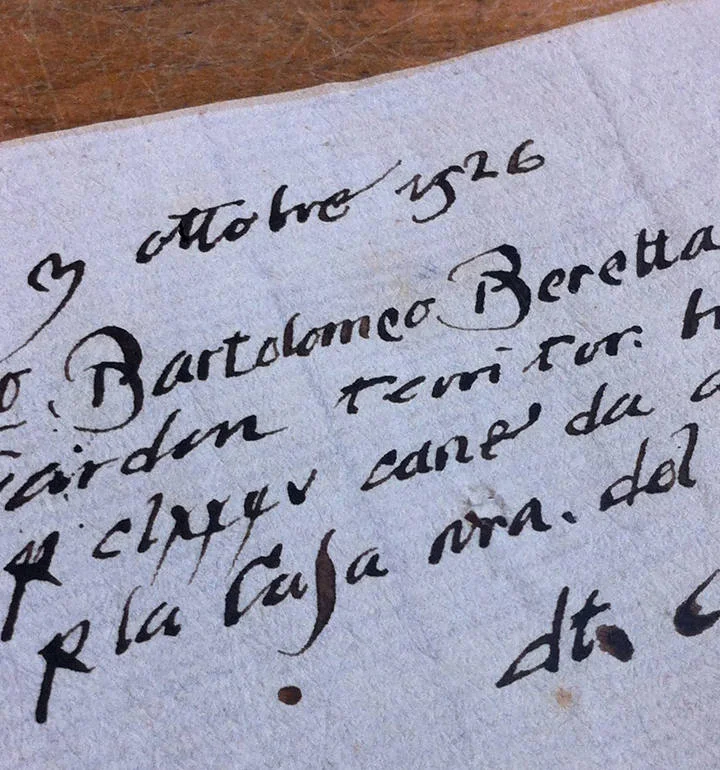 3 ottobre 1526
o Bartolomeo Beretta
Gardon territor. b
p clxxxv cane da
p la Casa nra. del
dt.